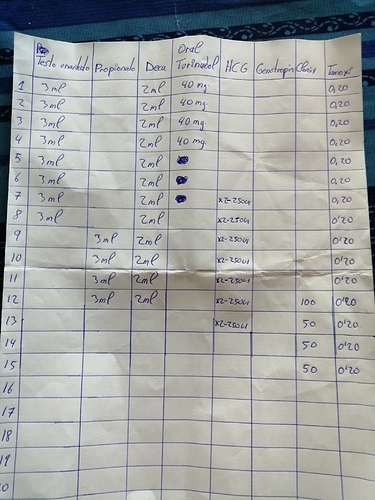 Testo enantato Propionato Deca Oral Turinabol HCG Genotropin Clomi Tamoxi
1 3ml 2ml 40 mg 0,20
2 3ml 2ml 40 mg. 0,20
3 3ml 2ml 40 mg. 0,20
4 3ml 2ml 40 mg. 0,20
5 3ml 2ml 0,20
6 3ml 2ml 0,20
7 3ml 2ml x2-250UI 0,20
8 3ml 2ml x2-250UI 0'20
9 3ml 2ml x2-250UI 0'20
10 3ml 2ml x2-250UI 0'20
11 3ml 2ml x2-250UI 0'20
12 3ml 2ml x2-250UI 100 0'20
13 x2-250UI 50 0'20
14 50 0'20
15 50 0'20
16
17
18
19